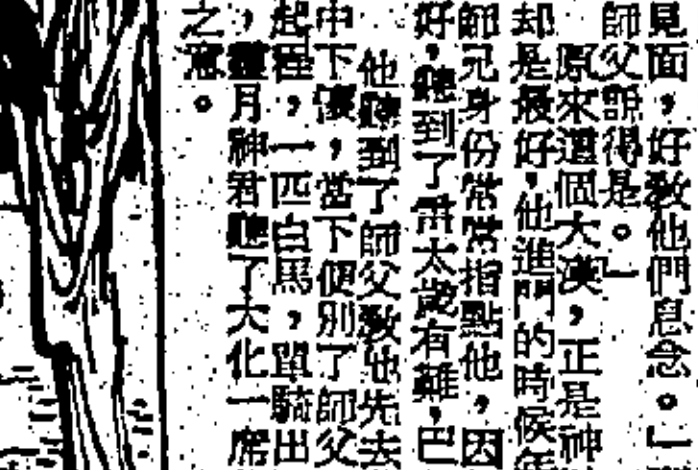 見面，好教他們息念。」
師父說得是。」
原來這個大漢，正是神
却是最好，他進門的時候年
師兄身份常常指點他，因
好，聽到了甫太歲有難，巴
他聽到了師父教他先去
中下懷，當下便別了師父
起程，一匹白馬，單騎出
，靈月神君聽了大化一席
之意。